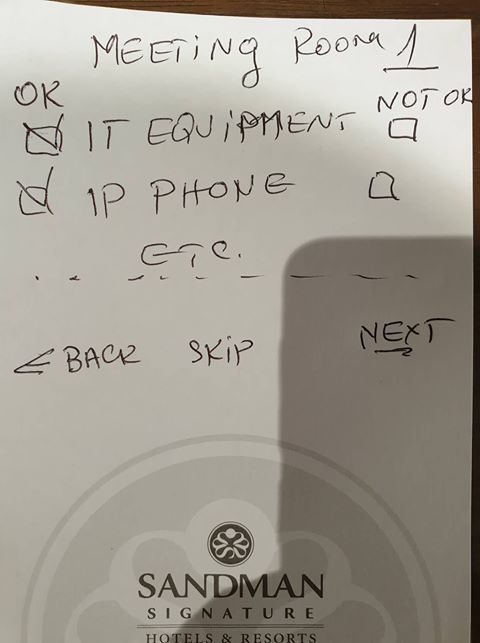 MEETING ROOM 1
OK NOT OK
IT EQUIPMENT
IP PHONE
ETC.
< BACK SKIP NEXT
SANDMAN
SIGNATURE
HOTELS & RESORTS